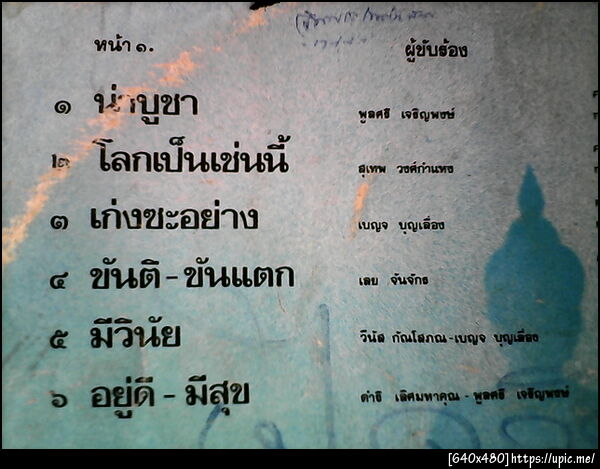 หน้า ๑. ผู้ขับร้อง
๑ น่าบูชา พูลศรี เจริญพงษ์
๒ โลกเป็นเช่นนี้ สุเทพ วงศ์กำแหง
๓ เก่งซะอย่าง เบญจ บุญเลื่อง
๔ ขันติ - ขันแตก เลย จันจักร
๕ มีวินัย วีนัส กัณโสภณ - เบญจ บุญเลื่อง
๖ อยู่ดี - มีสุข ดำริ เลิศมหาคุณ - พูลศรี เจริญพงษ์
[640x480]https://upic.me/